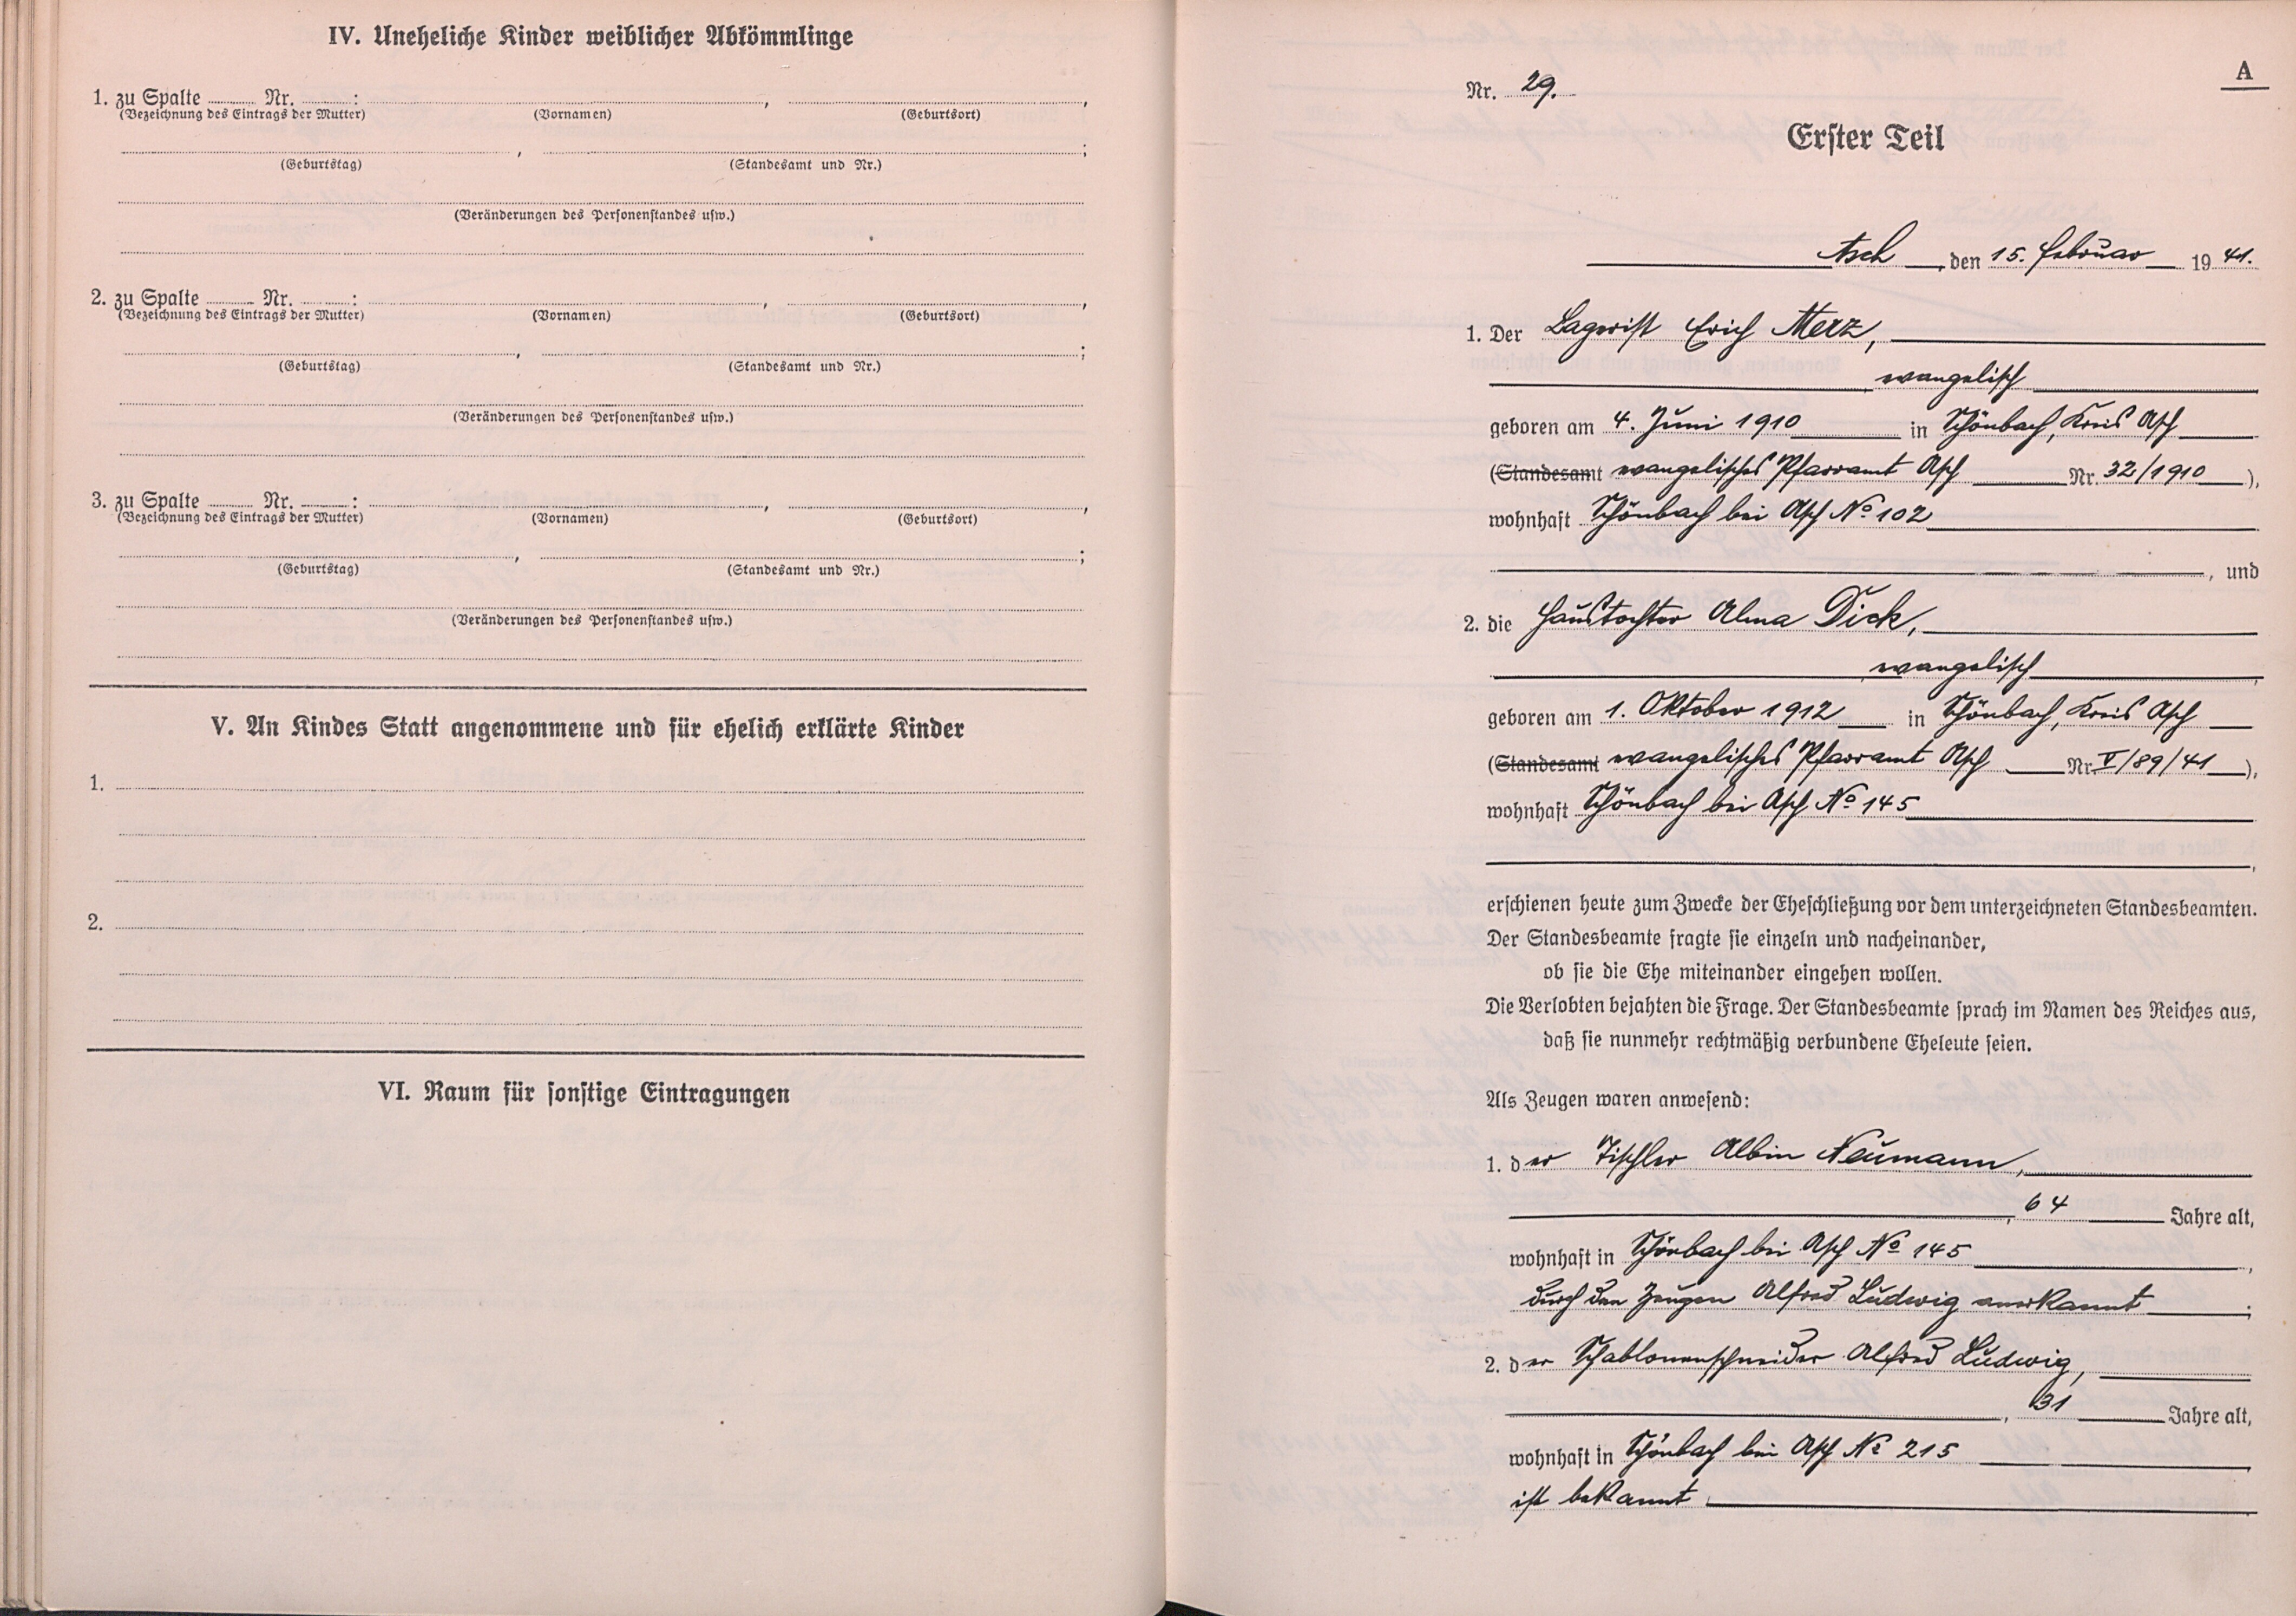 IV. Uneheliche Kinder weiblicher Abkömmlinge
1. zu Spalte ........ Nr. ........: ........, ........,
(Bezeichnung des Eintrags der Mutter) (Vornamen) (Geburtsort)
........, ........;
(Geburtstag) (Standesamt und Nr.)
(Veränderungen des Personenstandes usw.)
2. zu Spalte ........ Nr. ........: ........, ........,
(Bezeichnung des Eintrags der Mutter) (Vornamen) (Geburtsort)
........, ........;
(Geburtstag) (Standesamt und Nr.)
(Veränderungen des Personenstandes usw.)
3. zu Spalte ........ Nr. ........: ........, ........,
(Bezeichnung des Eintrags der Mutter) (Vornamen) (Geburtsort)
........, ........;
(Geburtstag) (Standesamt und Nr.)
(Veränderungen des Personenstandes usw.)
V. An Kindes Statt angenommene und für ehelich erklärte Kinder
1.
2.
VI. Raum für sonstige Eintragungen
A
Nr. 29.
Erster Teil
Asch, den 15. Februar 1941.
1. Der Lagerist Erich Merz,
evangelisch
geboren am 4. Juni 1910 in Schönbach, Kreis Asch
(Standesamt evangelisches Pfarramt Asch Nr. 32/1910),
wohnhaft Schönbach bei Asch No 102
, und
2. die Haustochter Alma Dick,
evangelisch,
geboren am 1. Oktober 1912 in Schönbach, Kreis Asch
(Standesamt evangelisches Pfarramt Asch Nr. V/89/41),
wohnhaft Schönbach bei Asch No 145
,
erschienen heute zum Zwecke der Eheschließung vor dem unterzeichneten Standesbeamten.
Der Standesbeamte fragte sie einzeln und nacheinander,
ob sie die Ehe miteinander eingehen wollen.
Die Verlobten bejahten die Frage. Der Standesbeamte sprach im Namen des Reiches aus,
daß sie nunmehr rechtmäßig verbundene Eheleute seien.
Als Zeugen waren anwesend:
1. der Tischler Albin Neumann,
, 64 Jahre alt,
wohnhaft in Schönbach bei Asch No 145,
durch den Zeugen Alfred Ludwig anerkannt;
2. der Schablonenschneider Alfred Ludwig,
, 31 Jahre alt,
wohnhaft in Schönbach bei Asch No 215,
ist bekannt